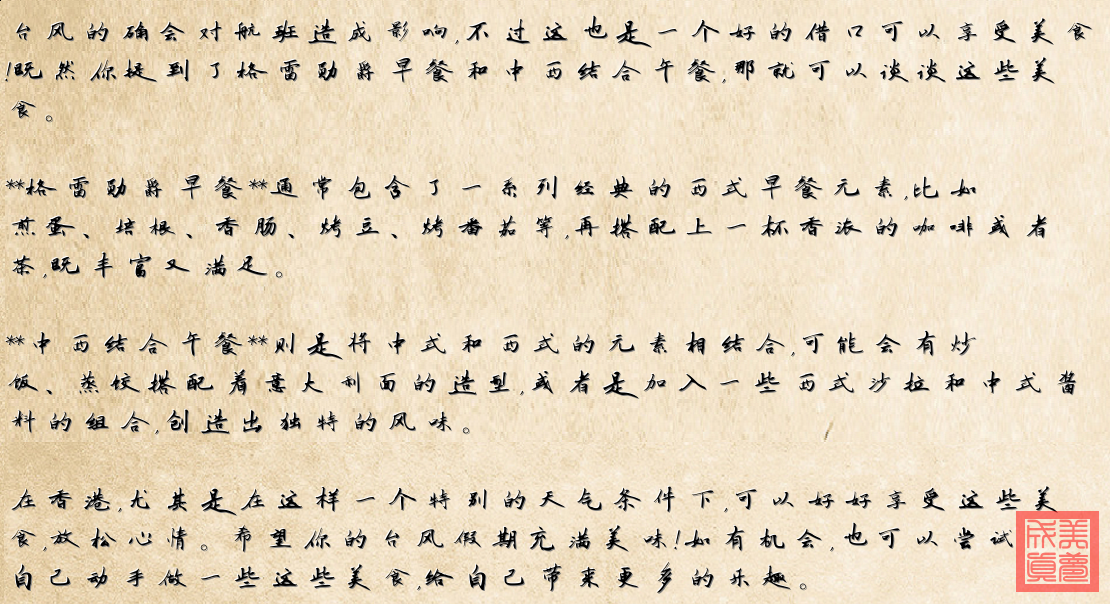 台风的确会对航班造成影响,不过这也是一个好的借口可以享受美食
!既然你提到了格雷勋爵早餐和中西结合午餐,那就可以谈谈这些美
食。
**格雷勋爵早餐**通常包含了一系列经典的西式早餐元素,比如
煎蛋、培根、香肠、烤豆、烤番茄等,再搭配上一杯香浓的咖啡或者
茶,既丰富又满足。
**中西结合午餐**则是将中式和西式的元素相结合,可能会有炒
饭、蒸饺搭配着意大利面的造型,或者是加入一些西式沙拉和中式酱
料的组合,创造出独特的风味。
在香港,尤其是在这样一个特别的天气条件下,可以好好享受这些美
食,放松心情。希望你的台风假期充满美味!如有机会,也可以尝试
自己动手做一些这些美食,给自己带来更多的乐趣。
美梦
成真